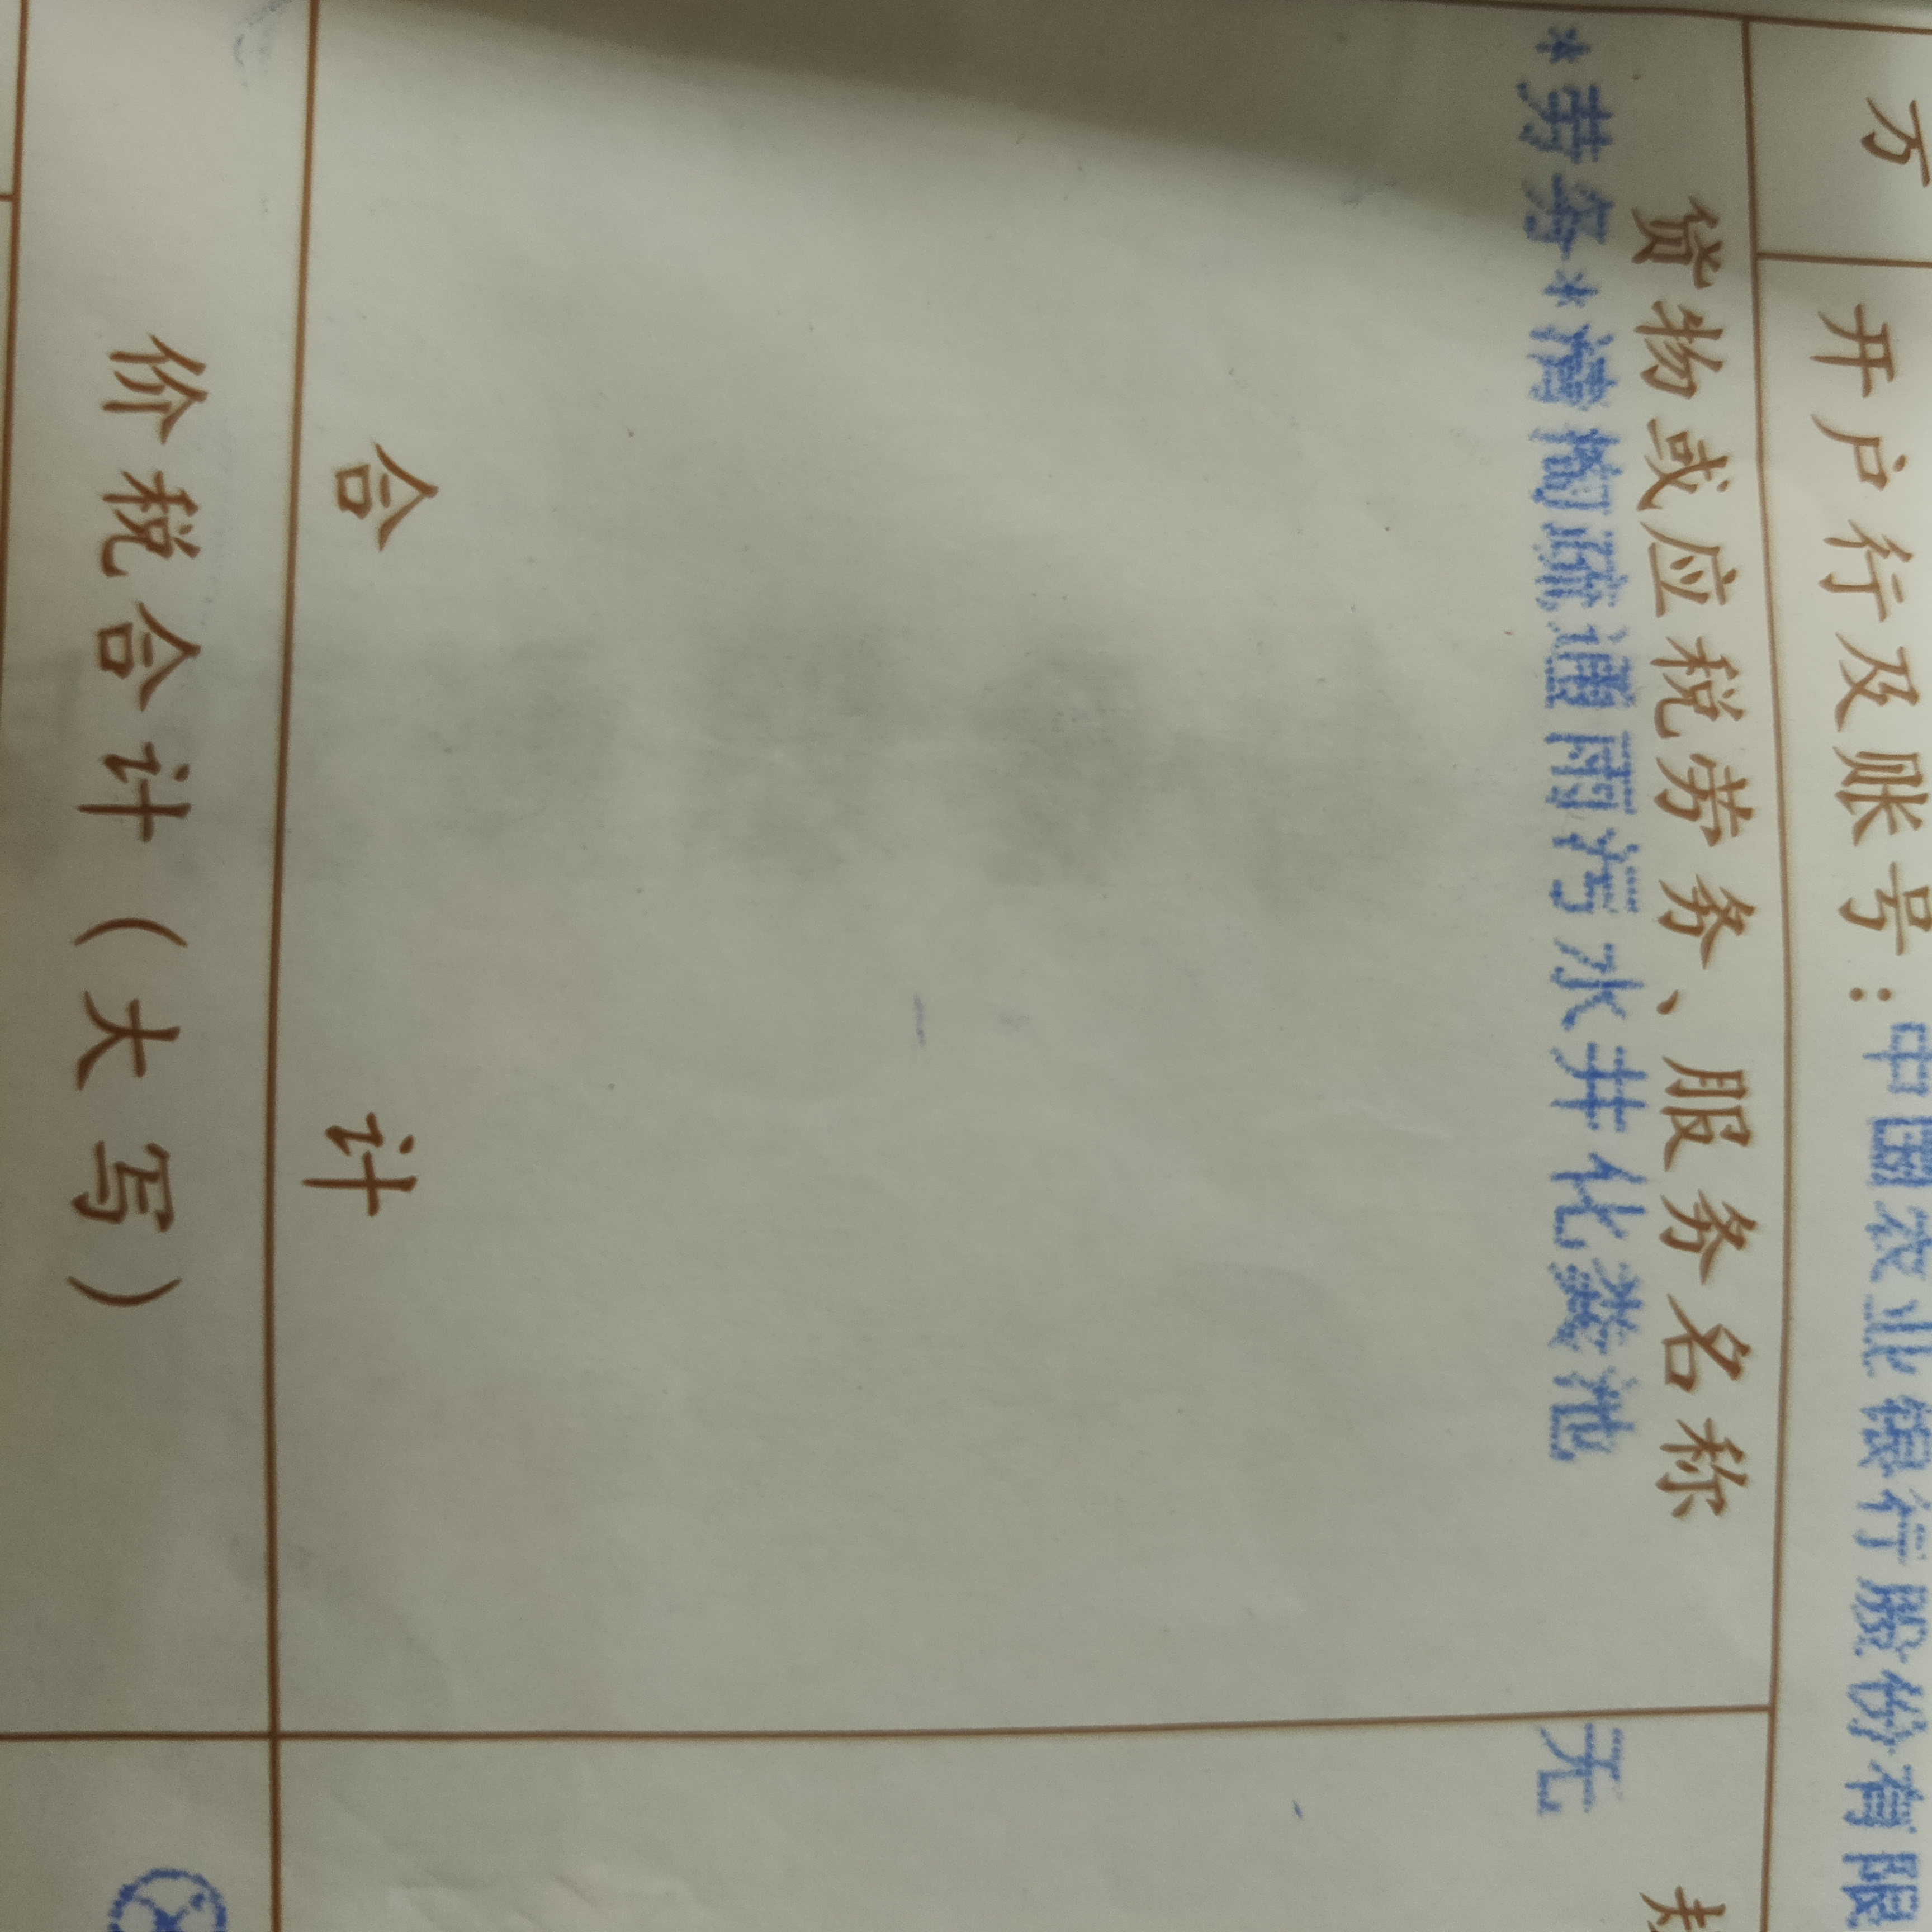 方
开户行及账号：中国农业银行股份有限
货物或应税劳务、服务名称
*劳务*清掏疏通雨污水井化粪池
无
合 计
价税合计（大写）